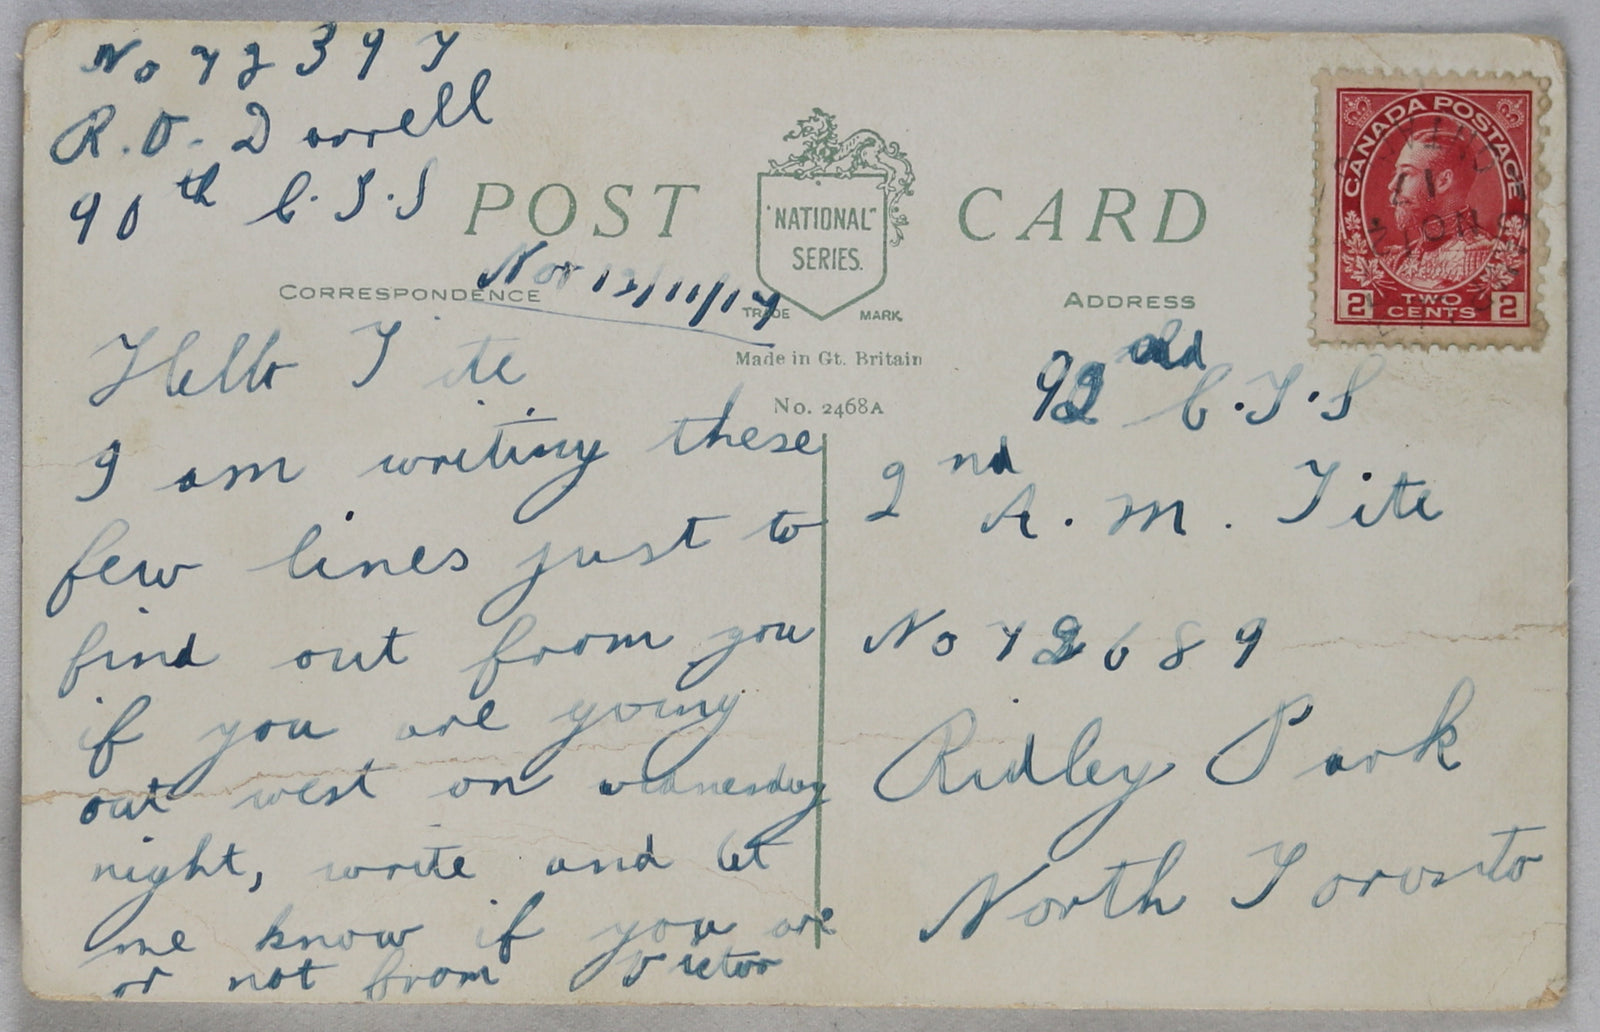 No 72397
R. O. Dorrell
90th C.T.S
POST CARD
"NATIONAL"
SERIES.
TRADE MARK
Made in Gt. Britain
No. 2468A
CORRESPONDENCE
Nov 12/11/17
Hello Tite
I am writing these
few lines just to
find out from you
if you are going
out west on wednesday
night, write and let
me know if you are
or not from Victor
ADDRESS
CANADA POSTAGE
2 TWO CENTS 2
92nd C.T.S
2nd A. M. Tite
No 72689
Ridley Park
North Toronto